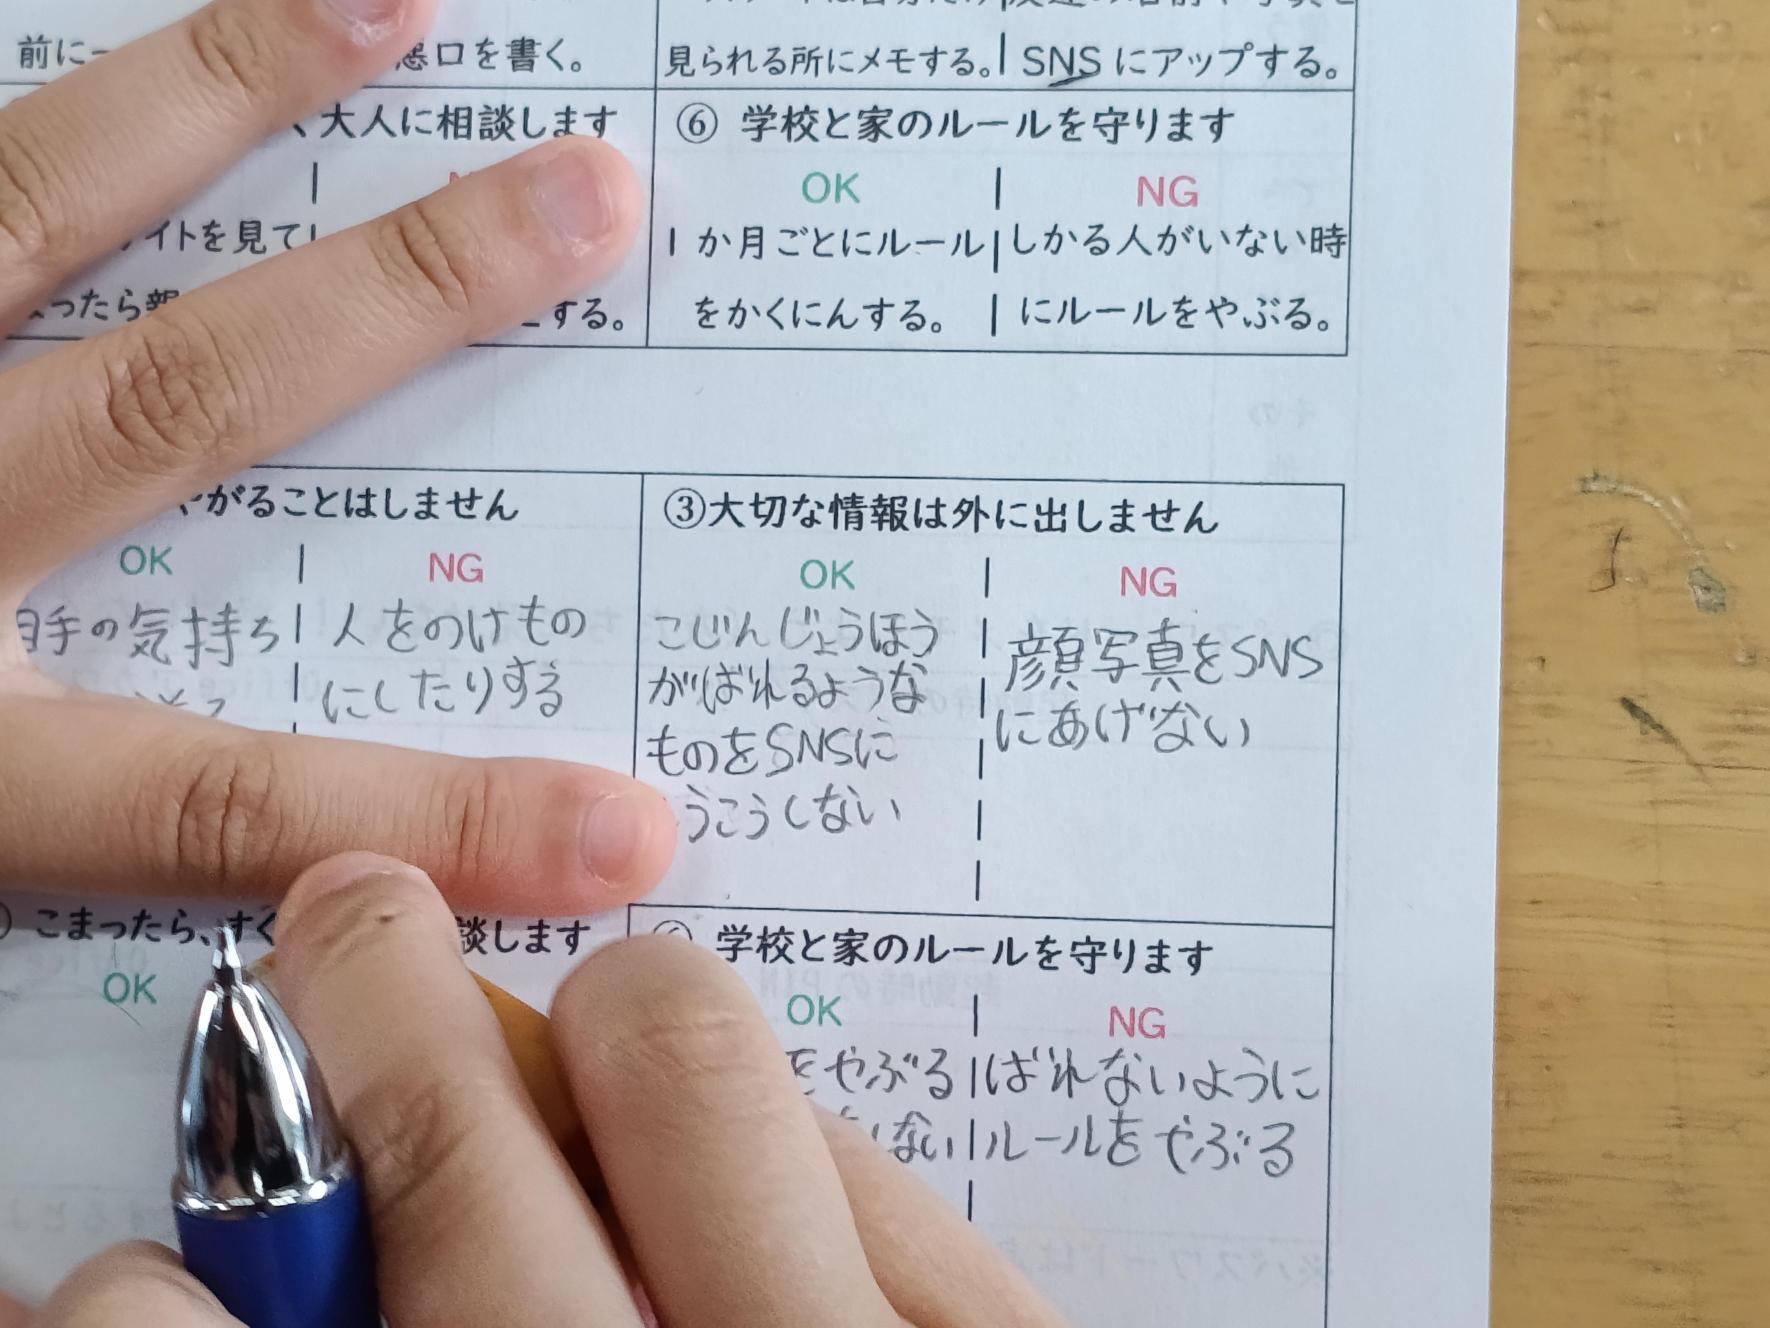 見られる所にメモする。 SNS にアップする。
悪口を書く。
前に一
、大人に相談します
イトを見て
ったら
する。
⑥ 学校と家のルールを守ります
OK NG
1か月ごとにルール しかる人がいない時
をかくにんする。 にルールをやぶる。
がることはしません
OK NG
手の気持ち 人をのけもの
にしたりする
③大切な情報は外に出しません
OK NG
こじんじょうほう 顔写真をSNS
がばれるような にあげない
ものをSNSに
うこうしない
こまったら、すぐ 談します
OK
学校と家のルールを守ります
OK NG
をやぶる ばれないように
ない ルールをやぶる